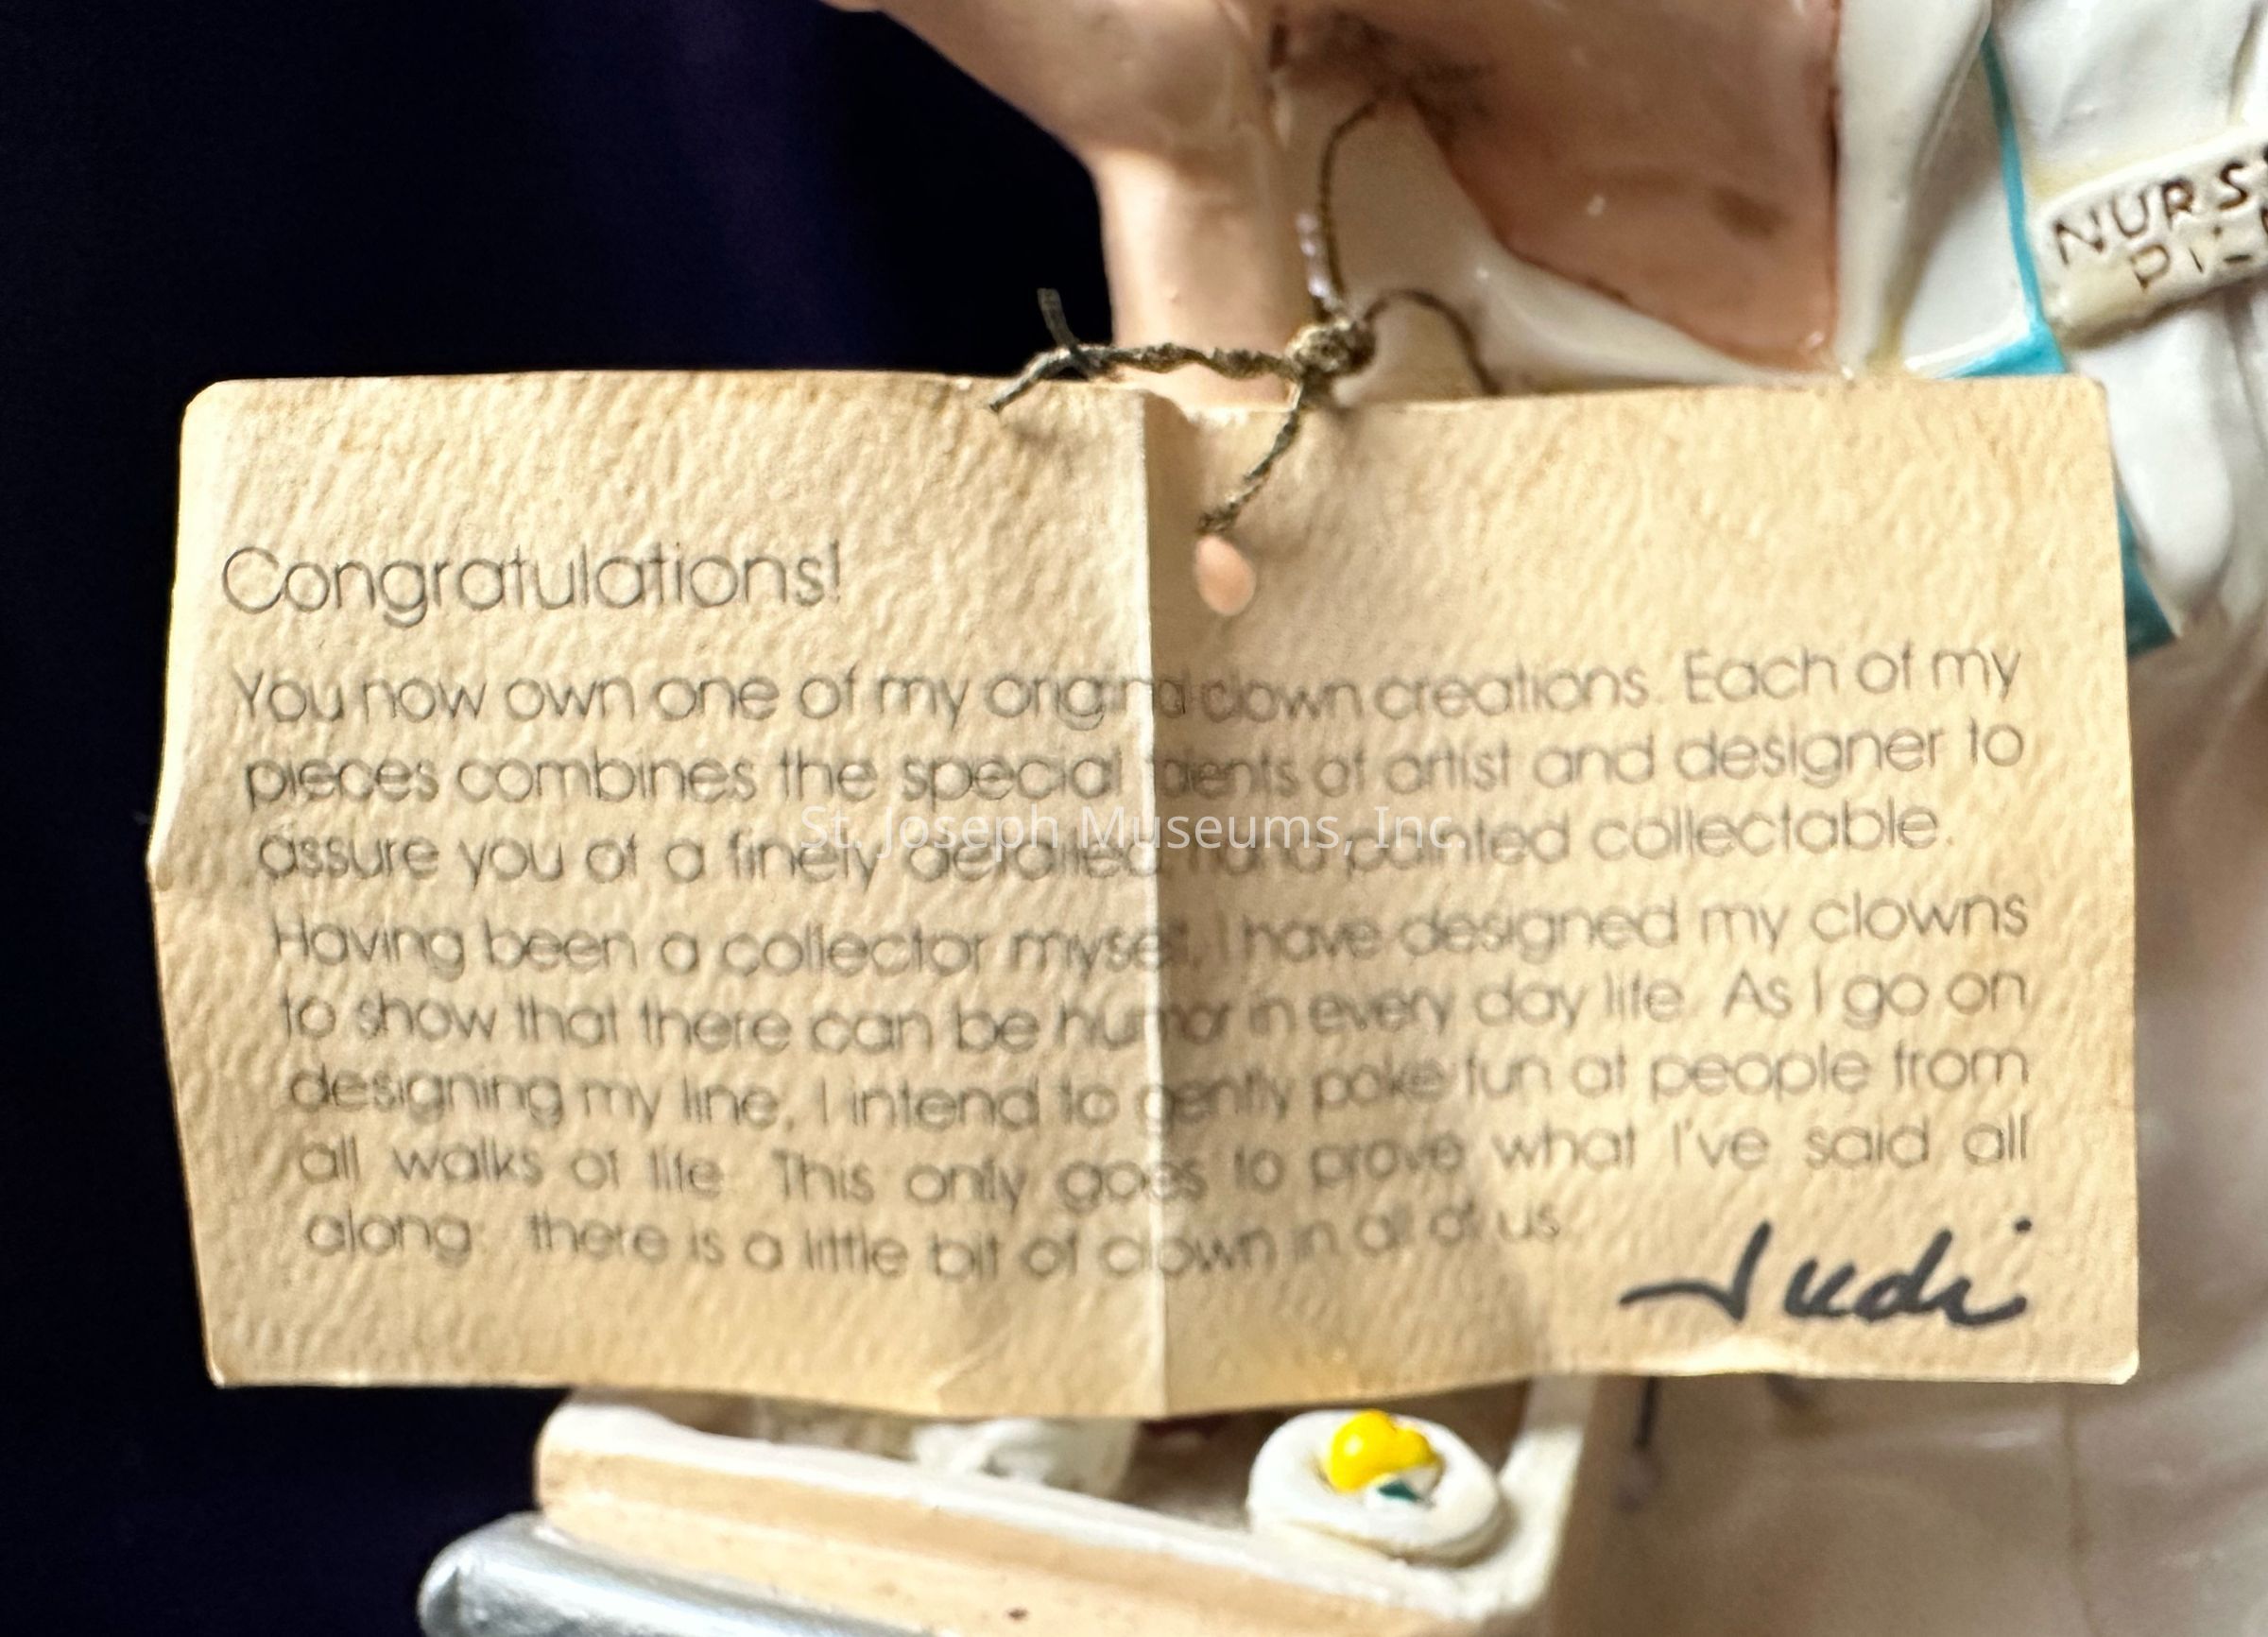 NURS
Congratulations!
You now own one of my original clown creations. Each of my
pieces combines the special talents of artist and designer to
assure you of a finely detailed hand painted collectable.
Having been a collector myself, I have designed my clowns
to show that there can be humor in every day life. As I go on
designing my line, I intend to gently poke fun at people from
all walks of life. This only goes to prove what I've said all
along: there is a little bit of clown in all of us.
Judi
St. Joseph Museums, Inc.